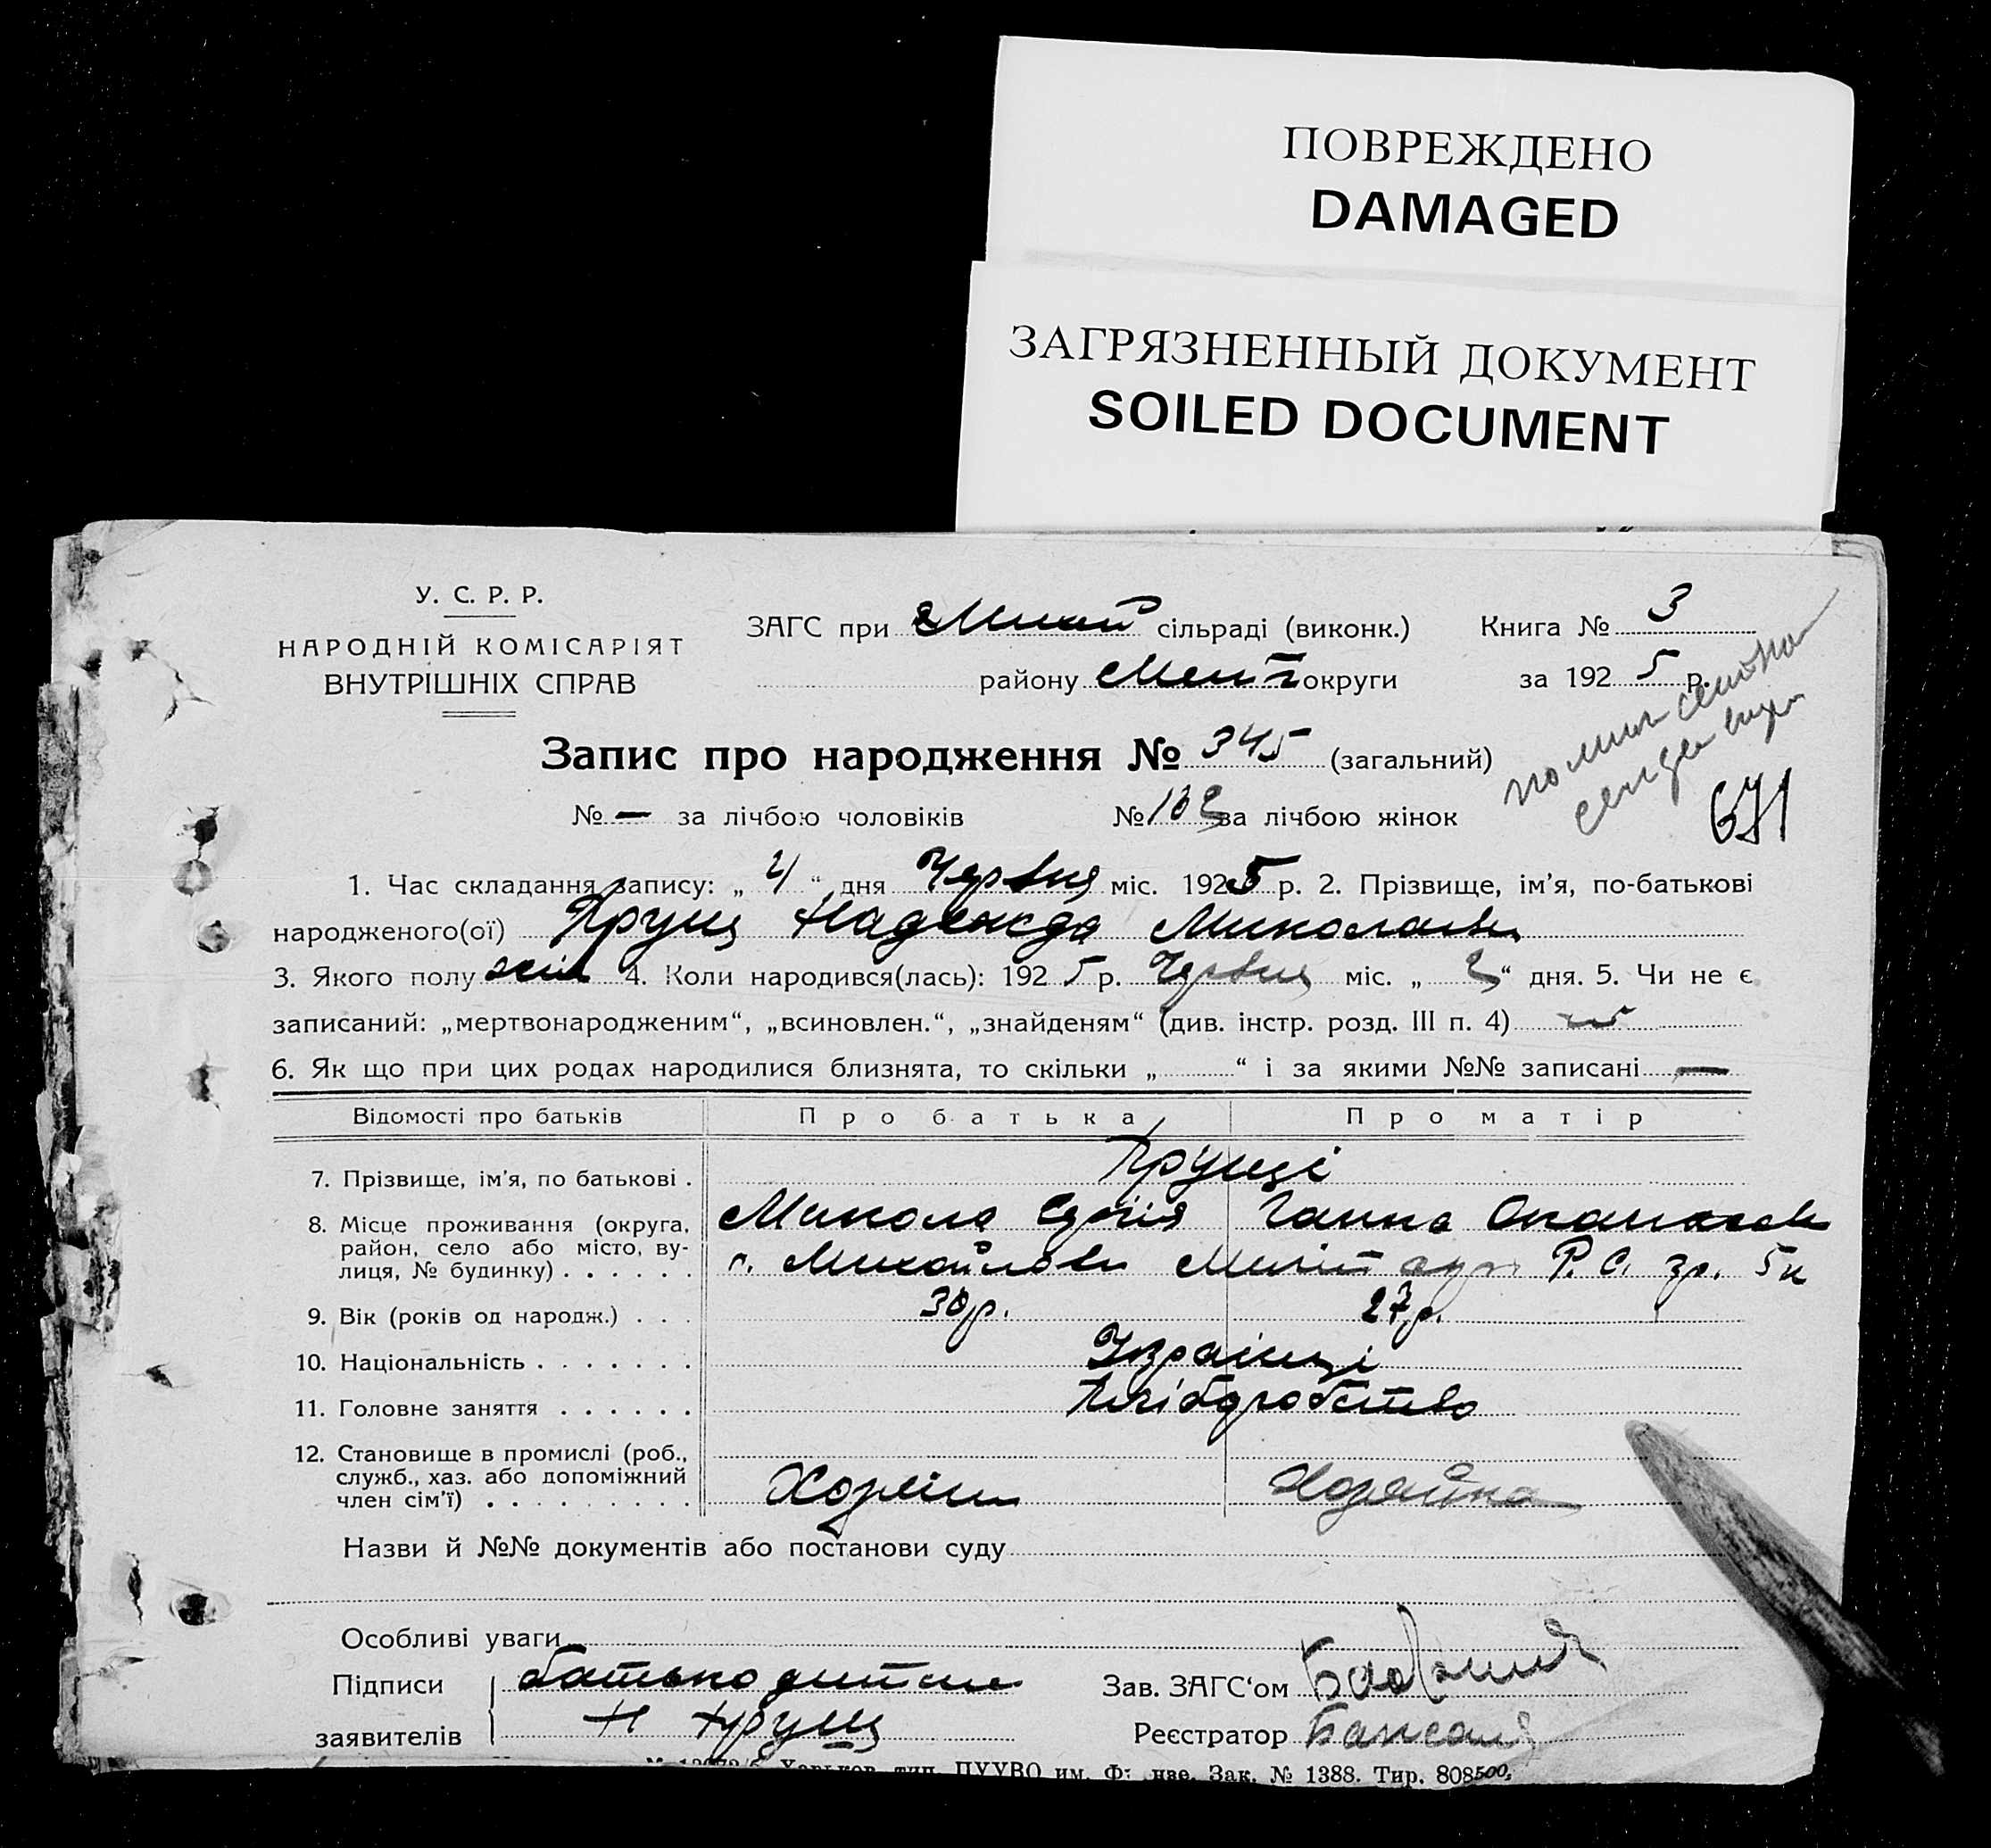 ПОВРЕЖДЕНО
DAMAGED
ЗАГРЯЗНЕННЫЙ ДОКУМЕНТ
SOILED DOCUMENT
У. С. Р. Р.
НАРОДНІЙ КОМІСАРІЯТ
ВНУТРІШНІХ СПРАВ
ЗАГС при сільраді (виконк.)
Книга № 3
району округи
за 1925 р.
Запис про народження № 345 (загальний)
№ — за лічбою чоловіків
№ за лічбою жінок
671
1. Час складання запису: „ 4 “ дня Червня міс. 1925 р. 2. Прізвище, ім’я, по-батькові
народженого(ої) Надежда Миколаівн
3. Якого полу жін 4. Коли народився(лась): 1925 р. Червня міс. „ “ дня. 5. Чи не є
записаний: „мертвонародженим“, „всиновлен.“, „знайденям“ (див. інстр. розд. III п. 4) ні
6. Як що при цих родах народилися близнята, то скільки „ “ і за якими №№ записані —
Відомості про батьків
Про батька
Про матір
7. Прізвище, ім’я, по батькові .
8. Місце проживання (округа,
район, село або місто, ву-
лиця, № будинку) . . . . . .
Микола
Ганна
с. Михайлівки Меліт окр. Р. С. 5
9. Вік (років од народж.) . . . 30р. 27р.
10. Національність . . . . . . . Українці
11. Головне заняття . . . . . . Хліборобство
12. Становище в промислі (роб.,
служб., хаз. або допоміжний
член сім’ї) . . . . . . . . .
Хозяін
Хозяйка
Назви й №№ документів або постанови суду
Особливі уваги
Підписи
заявителів
батько дитини
Зав. ЗАГС‘ом
Реєстратор
Зак. № 1388. Тир. 808500,